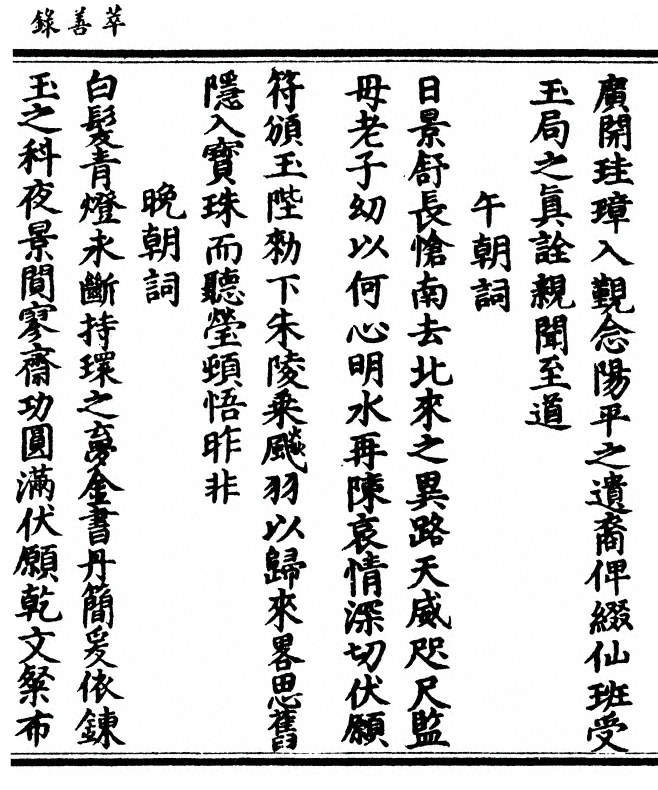 萃善錄
廣開珪璋入覲念陽平之遺裔俾綴仙班受
玉局之眞詮親聞至道
午朝詞
日景舒長愴南去北來之異路天威咫尺監
毋老子幼以何心明水再陳哀情深切伏願
符頒玉陛勑下朱陵乘飈羽以歸來畧思舊
隱入寶珠而聽瑩頓悟昨非
晚朝詞
白髮青燈永斷持環之夢金書丹簡爰依鍊
玉之科夜景閴寥齋功圓滿伏願乾文粲布